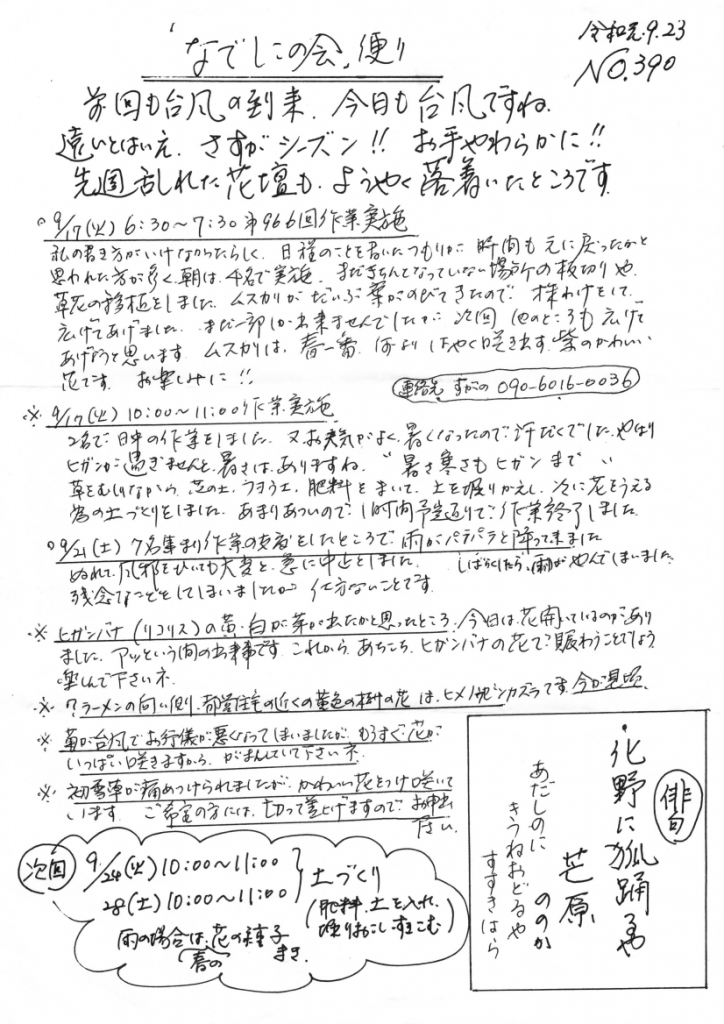 令和元.9.23
「なでしこの会」便り
NO.390
前回も台風の到来、今日も台風ですね。
遠いとはいえ、さすがシーズン!! お手やわらかに!!
先週乱れた花壇も、ようやく落着いたところです。
○9/17(火) 6:30〜7:30 第966回作業実施
私の書き方がいけなかったらしく、日程のことを書いたつもりが 時間も元に戻ったかと
思われた方が多く、朝は、4名で実施。まだきちんとなっていない場所の枝切りや、
草花の移植をしました。ムスカリが だいぶ葉がのびてきたので、株わけをして、
広げてあげました。まだ一部しか出来ませんでしたが 次回 他のところも広げて
あげようと思います。ムスカリは、春一番、何よりはやく咲き出す、紫のかわいい
花です。お楽しみに!!
連絡先 すがの 090-6016-0036
※ 9/17(火) 10:00〜11:00 作業実施
2名で日中の作業をしました。又お天気がよく、暑くなったので 汗だくでした。やはり
ヒガンが過ぎませんと、暑さは、ありますね。"暑さ寒さもヒガンまで"
草をむしりながら、芝の土、フヨウ土、肥料をまいて、土を堀りかえし、次に花をうえる
為の土づくりをしました。あまりあついので、1時間予定通りで作業終了しました。
○9/21(土) 7名集まり作業の支度をしたところで、雨がパラパラと降って来ました
ぬれて、風邪をひいても大変と、急に中止としました。しばらくしたら、雨がやんでしまいました。
残念なことをしてしまいましたが 仕方ないことです。
※ ヒガンバナ(リコリス)の黄・白が芽が出たかと思ったところ、今日は、花開いているのがあり
ました。アッという間の出来事です。これから、あちこち、ヒガンバナの花で賑わうことでしょう
楽しんで下さいネ。
※ ラーメンの向い側、都営住宅の近くの黄色の樹の花は、ヒメノウゼンカズラです。今が見頃。
※ 菊が台風でお行儀が悪くなってしまいましたが、もうすぐ花が
いっぱい咲きますから、がまんしていて下さいネ
※ 初雪草が痛めつけられましたが、かわいい花をつけ咲いて
います。ご希望の方には、切って差上げますので、お申出
下さい。
次回
9/24(火) 10:00〜11:00
28(土) 10:00〜11:00
土づくり
(肥料、土を入れ、
堀りおこし、すきこむ)
雨の場合は、花の種子
まき。
(春の)
俳句
・化野に狐踊るや
芒原
あだしのに
きつねおどるや
ののか
すすきはら